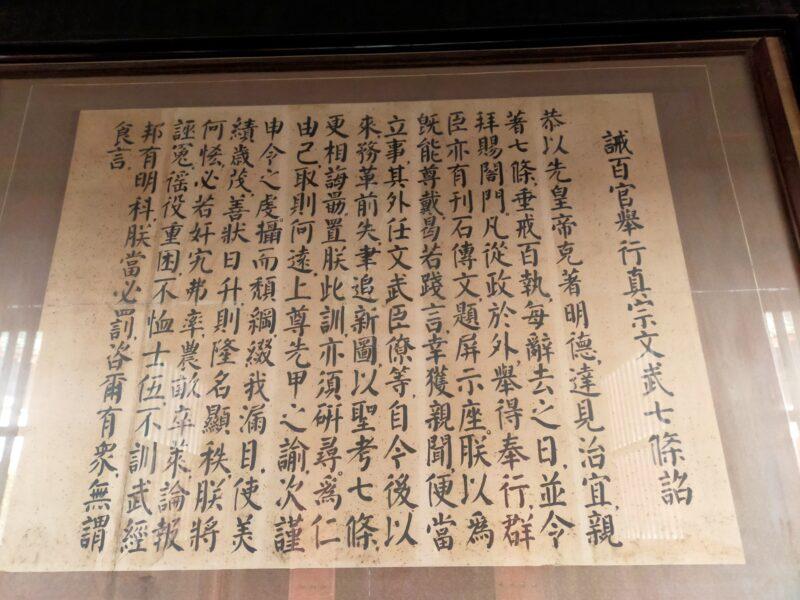 誡百官舉行真宗文武七條詔
恭以先皇帝克著明德,達見治宜,親
著七條,垂戒百執,每辭去之日,並令
拜賜閤門,凡從政於外,舉得奉行,群
臣亦有刊石傳文,題屏示座。朕以為
旣能尊戴,曷若踐言,幸獲親聞,便當
立事,其外任文武臣僚等,自今後以
來,務革前失,聿追新圖,以聖考七條,
更相誨勗,置朕此訓,亦須硏尋。為仁
由己,取則何遠,上尊先甲之諭,次謹
申令之虔。攝而頹綱,綴我漏目,使美
績歲茂,善狀日升,則隆名顯秩,朕將
何恡,必若奸宄弗率,農畝卒萊,論報
誣冤,徭役重困,不恤士伍,不訓武經
邦有明科,朕當必罰,咨爾有衆,無謂
食言。